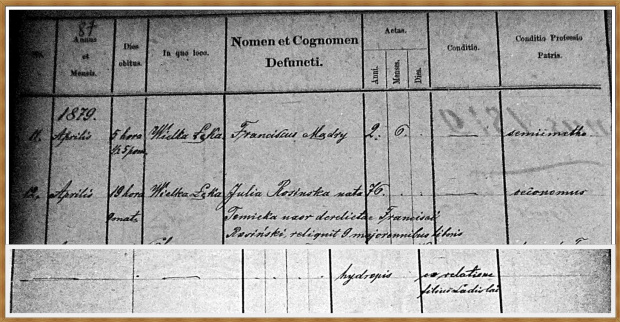 87
No. Annus et Mensis. Dies obitus. In quo loco. Nomen et Cognomen Defuncti. Aetas. Anni. Menses. Dies. Conditio. Conditio Professio Patris.
1879.
11. Aprilis 5 hora ½5 pom. Wielka Łąka Franciscus Mądry 2. 6. —
12. Aprilis 19 hora mat. Wielka Łąka Julia Rosinska nata 76 . . — oeconomus
Temicka uxor derelicta Francisci
Rosiński, reliquit 9 majorennibus liberis
hydropis ex relatione
filius Ladislai